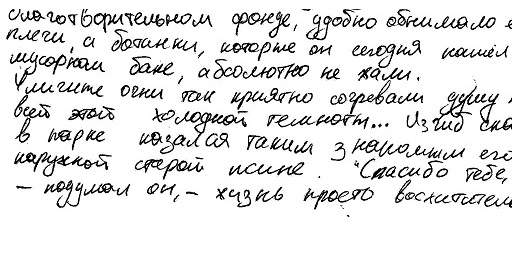 благотворительном фонде, удобно обнимало е
плечи, а ботинки, которые он сегодня нашел
мусорном баке, абсолютно не жали.
Уличные огни так приятно согревали душу п
всей этой холодной темноты... Изгиб ска
в парке казался таким знакомым его
наружной старой псине. "Спасибо тебе,
– подумал он, – жизнь просто восхитительн